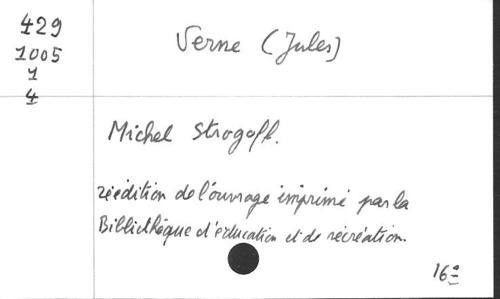 429
1005
1
4
Verne (Jules)
Michel Strogoff.
réédition de l'ouvrage imprimé par la
Bibliothèque d'education et de récréation.
16º